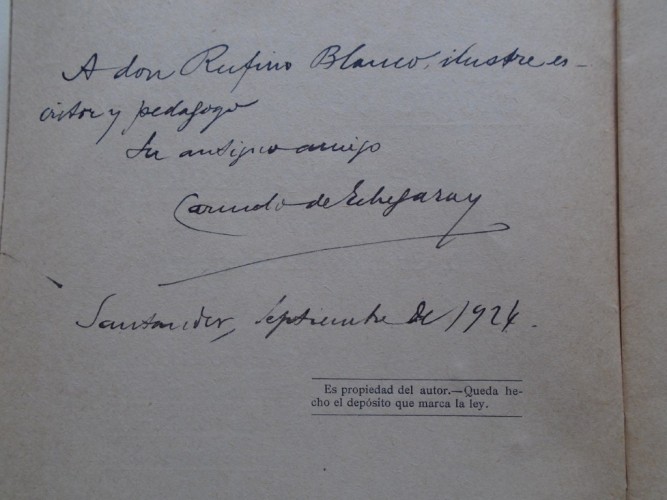 A don Rufino Blanco, ilustre es-
critor y pedagogo
Su antiguo amigo
Carmelo de Echegaray
Santander, septiembre de 1924.
Es propiedad del autor.—Queda he-
cho el depósito que marca la ley.